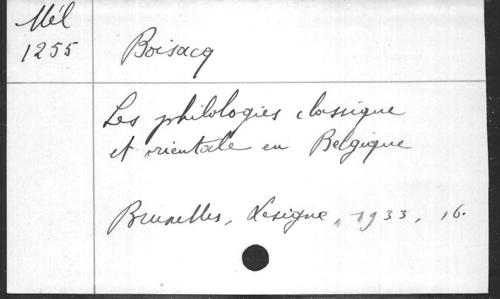 Mél
1255
Boisacq
Les philologies classique
et orientale en Belgique
Bruxelles, Lesigne, 1933, 16.